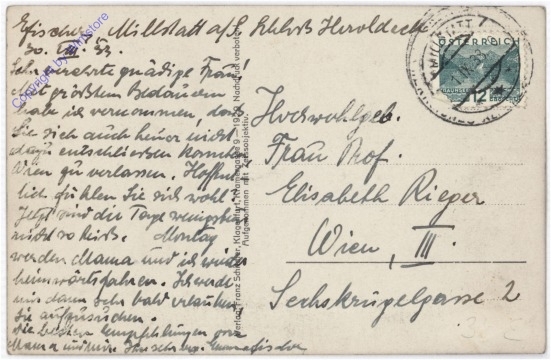 Millstatt a/S. Schloß Heroldeck
30. VIII. 33.
Sehr verehrte gnädige Frau!
Mit größtem Bedauern
habe ich vernommen, dass
Sie sich auch heuer nicht
dazu entschließen konnten
Wien zu verlassen. Hoffent-
lich fühlen Sie sich wohl.
Jetzt sind die Tage wenigstens
nicht so heiß. Montag
werden Mama und ich wieder
heimwärtsfahren. Ich werde
mir dann sehr bald erlauben
Sie aufzusuchen.
Die besten Empfehlungen von
Mama und
Verlag Franz Schilcher, Klagenfurt, 9 — 1929. Nachdruck verboten.
Aufgenommen mit Zeissobjektiv.
MILLSTATT
ÖSTERREICH
12
Hochwohlgeb.
Frau Prof.
Elisabeth Rieger
Wien, III.
Sechskrügelgasse 2
Copyright by